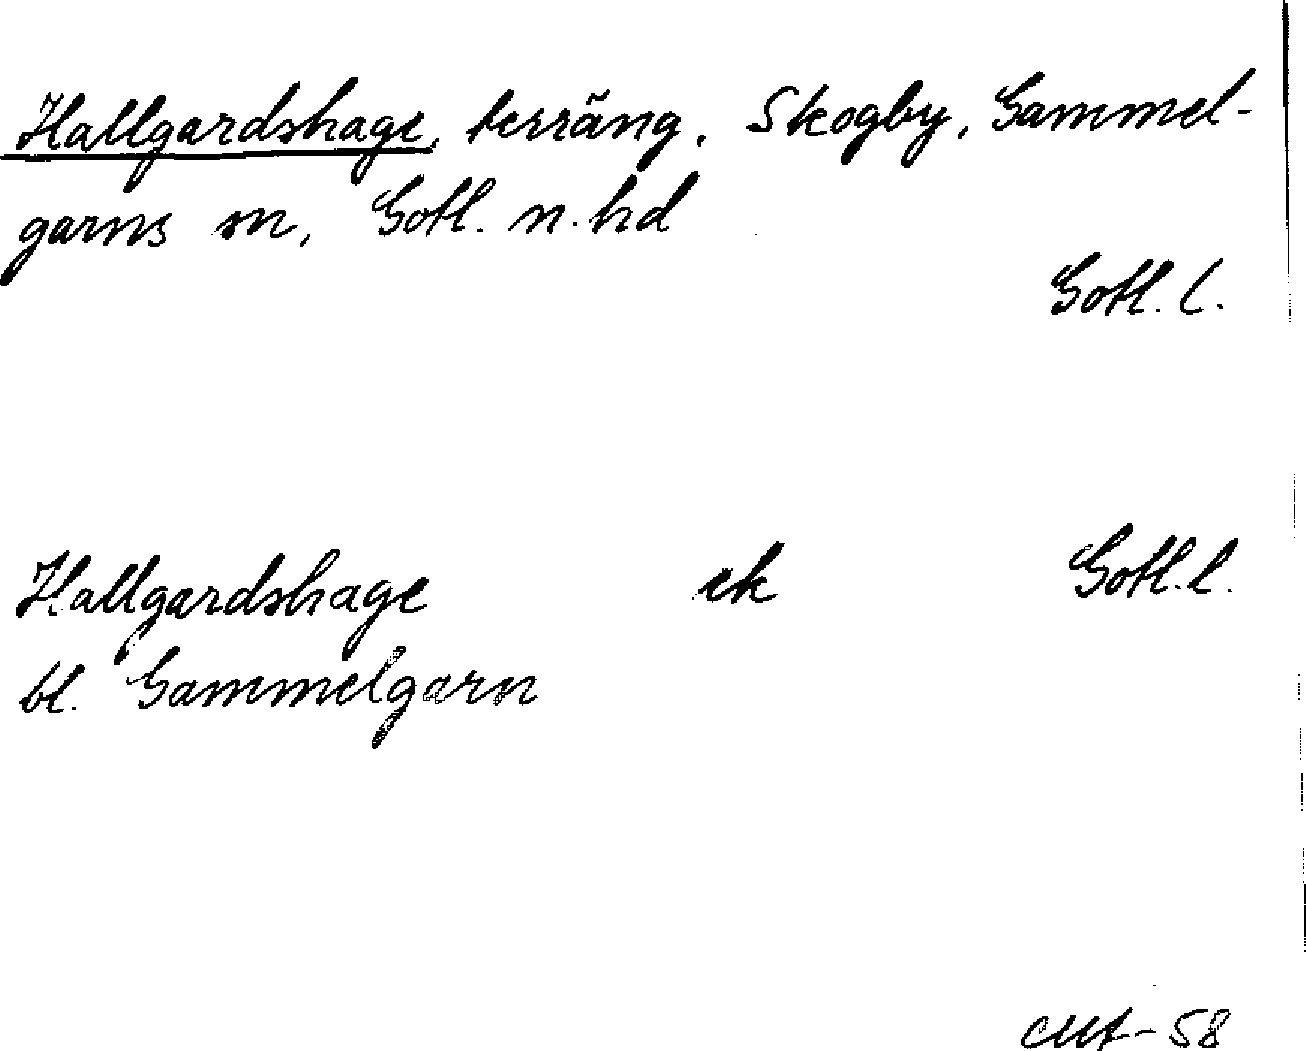 Hallgardshage, terräng, Skogby, Gammel-
garns sn, Gotl. n. hd
Gotl. l.
Hallgardshage ek Gotl. l.
bl. Gammelgarn
58